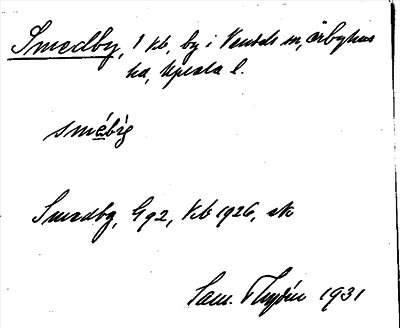 Smedby, 1 kb, by i Vendels sn, Örbyhus
hd, Upsala l.
smèbig
Smedby, Gg2, Kb 1926, ek
Sam. Thyrén 1931